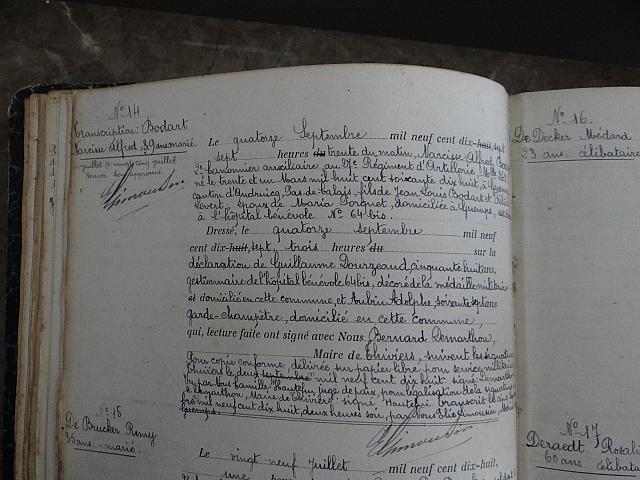 No 14
Transcription: Bodart
Narcisse Alfred, 39 ans marié.
juillet vingt cinq juillet
Le quatorze Septembre mil neuf cent dix-huit, sept
sept heures du trente du matin, Narcisse Alfred Bodart
2e canonnier auxiliaire au Régiment d'Artillerie,
né le trente et un Mars mil huit cent soixante dix huit, à Guemps,
canton d'Audruicq, Pas-de-Calais, fils de Jean Louis Bodart et
Levert, époux de Maria Forquet, domiciliée à Guemps,
à l'hôpital bénévole No 64 bis.
Dressé, le quatorze septembre mil neuf
cent dix-huit, sept, trois heures du sur la
déclaration de Guillaume Dourzeaud, cinquante huit ans,
gestionnaire de l'hôpital bénévole 64 bis, décoré de la médaille militaire
et domicilié en cette commune, et Aubin Adolphe, soixante sept ans
garde-champêtre, domicilié en cette commune,
qui, lecture faite ont signé avec Nous Bernard Demarthon,
Maire de Thiviers, suivent les signatures
Pour copie conforme, délivrée sur papier libre, pour service militaire
Thiviers le deux septembre mil neuf cent dix huit. signé: Demarthon
Vu par juge de paix, pour légalisation de la signature
Demarthon, Maire de Thiviers. signé Hautefui transcrit le
mil neuf cent dix huit, deux heures soir, par Nous Elie Limousin,
Guemps.
No 15
De Brucker Remy
35 ans marié.
Le vingt neuf Juillet mil neuf cent dix-huit,
une heures
No 16.
De Decker Médard
23 ans célibataire
No 17
Deraedt, Rosalie
60 ans célibataire